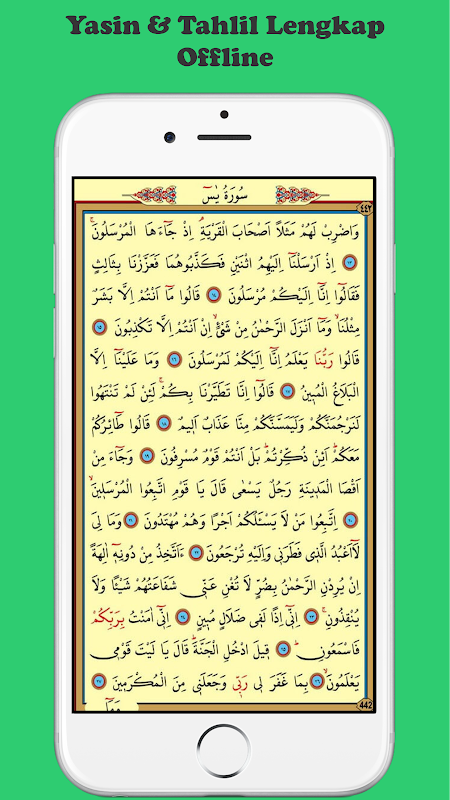 Yasin & Tahlil Lengkap
Offline
سُورَةُ يٰسٓ
٤٤٢
وَاضْرِبْ لَهُمْ مَثَلًا اَصْحَابَ الْقَرْيَةِۢ اِذْ جَٓاءَهَا الْمُرْسَلُونَۚ
﴿١٣﴾ اِذْ اَرْسَلْنَٓا اِلَيْهِمُ اثْنَيْنِ فَكَذَّبُوهُمَا فَعَزَّزْنَا بِثَالِثٍ
فَقَالُٓوا اِنَّٓا اِلَيْكُمْ مُرْسَلُونَ ﴿١٤﴾ قَالُوا مَٓا اَنْتُمْ اِلَّا بَشَرٌ
مِثْلُنَاۙ وَمَٓا اَنْزَلَ الرَّحْمٰنُ مِنْ شَيْءٍۙ اِنْ اَنْتُمْ اِلَّا تَكْذِبُونَ ﴿١٥﴾
قَالُوا رَبُّنَا يَعْلَمُ اِنَّٓا اِلَيْكُمْ لَمُرْسَلُونَ ﴿١٦﴾ وَمَا عَلَيْنَٓا اِلَّا
الْبَلَاغُ الْمُبٖينُ ﴿١٧﴾ قَالُٓوا اِنَّا تَطَيَّرْنَا بِكُمْۚ لَئِنْ لَمْ تَنْتَهُوا
لَنَرْجُمَنَّكُمْ وَلَيَمَسَّنَّكُمْ مِنَّا عَذَابٌ اَلٖيمٌ ﴿١٨﴾ قَالُوا طَٓائِرُكُمْ
مَعَكُمْۜ اَئِنْ ذُكِّرْتُمْۜ بَلْ اَنْتُمْ قَوْمٌ مُسْرِفُونَ ﴿١٩﴾ وَجَٓاءَ مِنْ
اَقْصَا الْمَدٖينَةِ رَجُلٌ يَسْعٰى قَالَ يَا قَوْمِ اتَّبِعُوا الْمُرْسَلٖينَۙ
﴿٢٠﴾ اِتَّبِعُوا مَنْ لَا يَسْـَٔلُكُمْ اَجْرًا وَهُمْ مُهْتَدُونَ ﴿٢١﴾ وَمَا لِيَ
لَٓا اَعْبُدُ الَّذٖي فَطَرَنٖي وَاِلَيْهِ تُرْجَعُونَ ﴿٢٢﴾ ءَاَتَّخِذُ مِنْ دُونِهٖٓ اٰلِهَةً
اِنْ يُرِدْنِ الرَّحْمٰنُ بِضُرٍّ لَا تُغْنِ عَنّٖي شَفَاعَتُهُمْ شَيْـًٔا وَلَا
يُنْقِذُونِۚ ﴿٢٣﴾ اِنّٖٓي اِذًا لَفٖي ضَلَالٍ مُبٖينٍ ﴿٢٤﴾ اِنّٖٓي اٰمَنْتُ بِرَبِّكُمْ
فَاسْمَعُونِۜ ﴿٢٥﴾ قٖيلَ ادْخُلِ الْجَنَّةَۜ قَالَ يَا لَيْتَ قَوْمٖي
يَعْلَمُونَۙ ﴿٢٦﴾ بِمَا غَفَرَ لٖي رَبّٖي وَجَعَلَنٖي مِنَ الْمُكْرَمٖينَ ﴿٢٧﴾
442